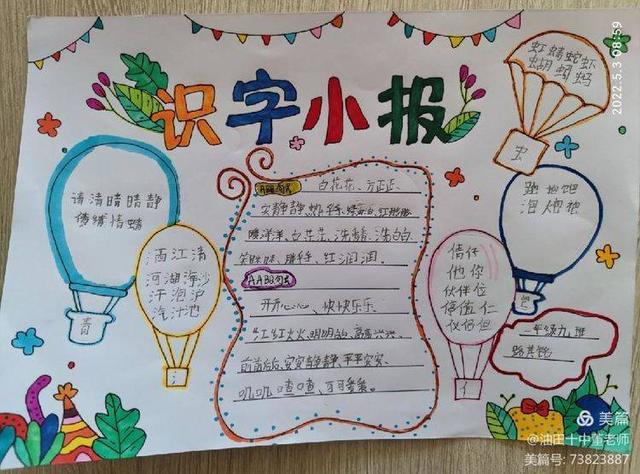 识字小报
2022.5.3 08:59
虹蜻蛇虾
蝴蚂
虫
请清晴晴静
情蜻
青
酒江清
河湖海沙
汗泪沪
汽汁池
氵
跑抱饱
泡炮袍
包
倩伴
他你
伙伴位
停值仁
仪伯但
亻
ABB词语
白花花、方正正、
安静静、热乎乎、
暖洋洋、白茫茫、洗白白
笑眯眯、胖乎乎、红润润。
AABB词语
开开心心、快快乐乐
红红火火、明明白白、高高兴兴、
前前后后、安安静静、平平安安、
叽叽喳喳、可可爱爱。
一年级九班
美篇
@油田十中董老师
美篇号: 73823887